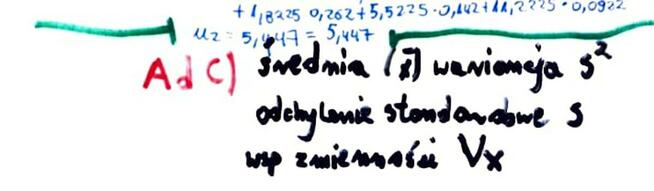 +1,8225 0,262+5,5225·0,142+11,2225·0,0922
u2 = 5,447 = 5,447
Ad C) średnia (x̄) wariancja s²
odchylenie standardowe s
wsp zmienności Vx